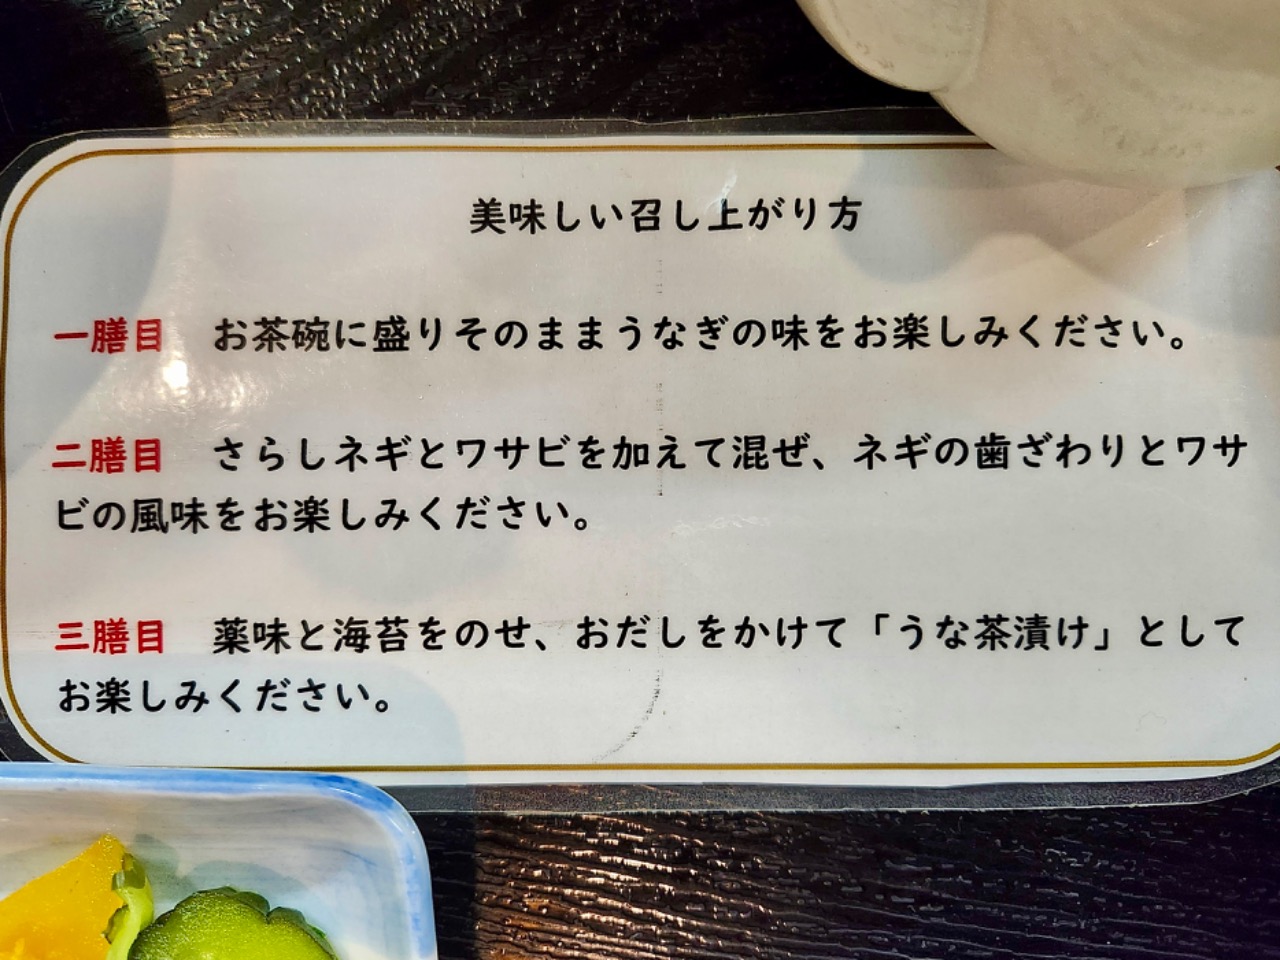 美味しい召し上がり方
一膳目　お茶碗に盛りそのままうなぎの味をお楽しみください。
二膳目　さらしネギとワサビを加えて混ぜ、ネギの歯ざわりとワサ
ビの風味をお楽しみください。
三膳目　薬味と海苔をのせ、おだしをかけて「うな茶漬け」として
お楽しみください。